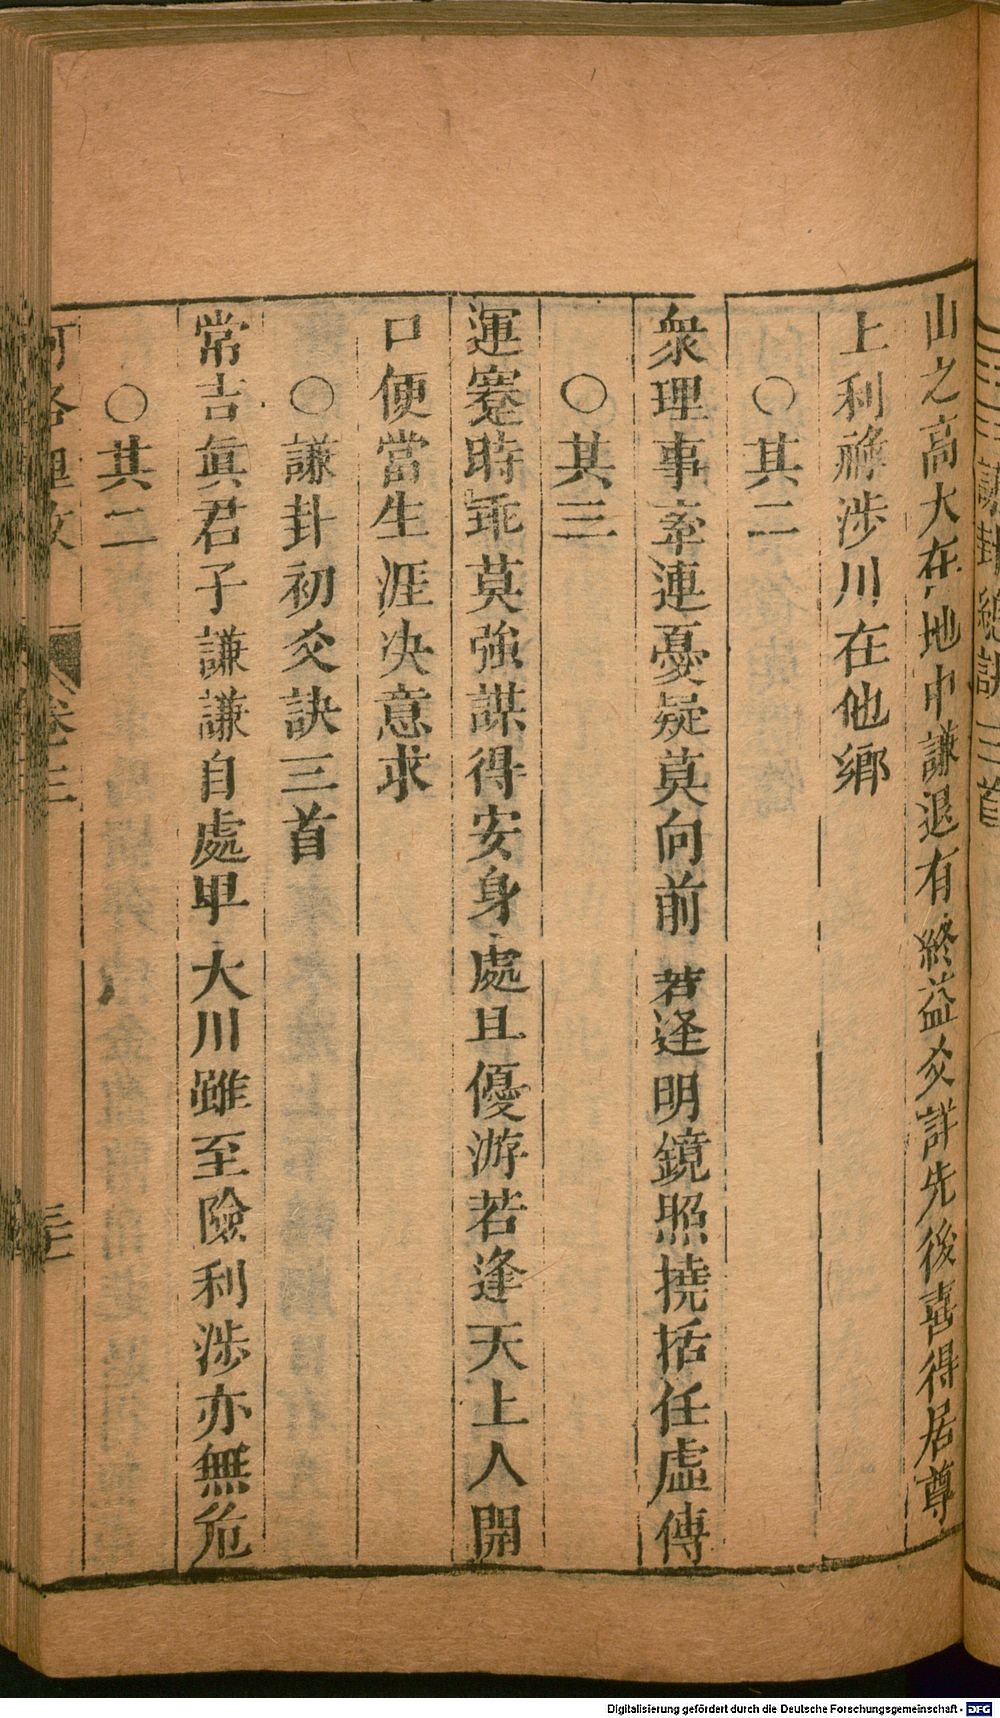 謙卦總訣三首
山之高大在地中謙退有終益爻詳先後喜得居尊
上利祿涉川在他鄉
○其二
衆理事牽連憂疑莫向前若逢明鏡照撓括任虛傳
○其三
運蹇時乖莫強謀得安身處且優游若逢天上人開
口便當生涯决意求
○謙卦初爻訣三首
常吉眞君子謙謙自處卑大川雖至險利涉亦無危
○其二
河洛理數
卷十三
Digitalisierung gefördert durch die Deutsche Forschungsgemeinschaft - DFG